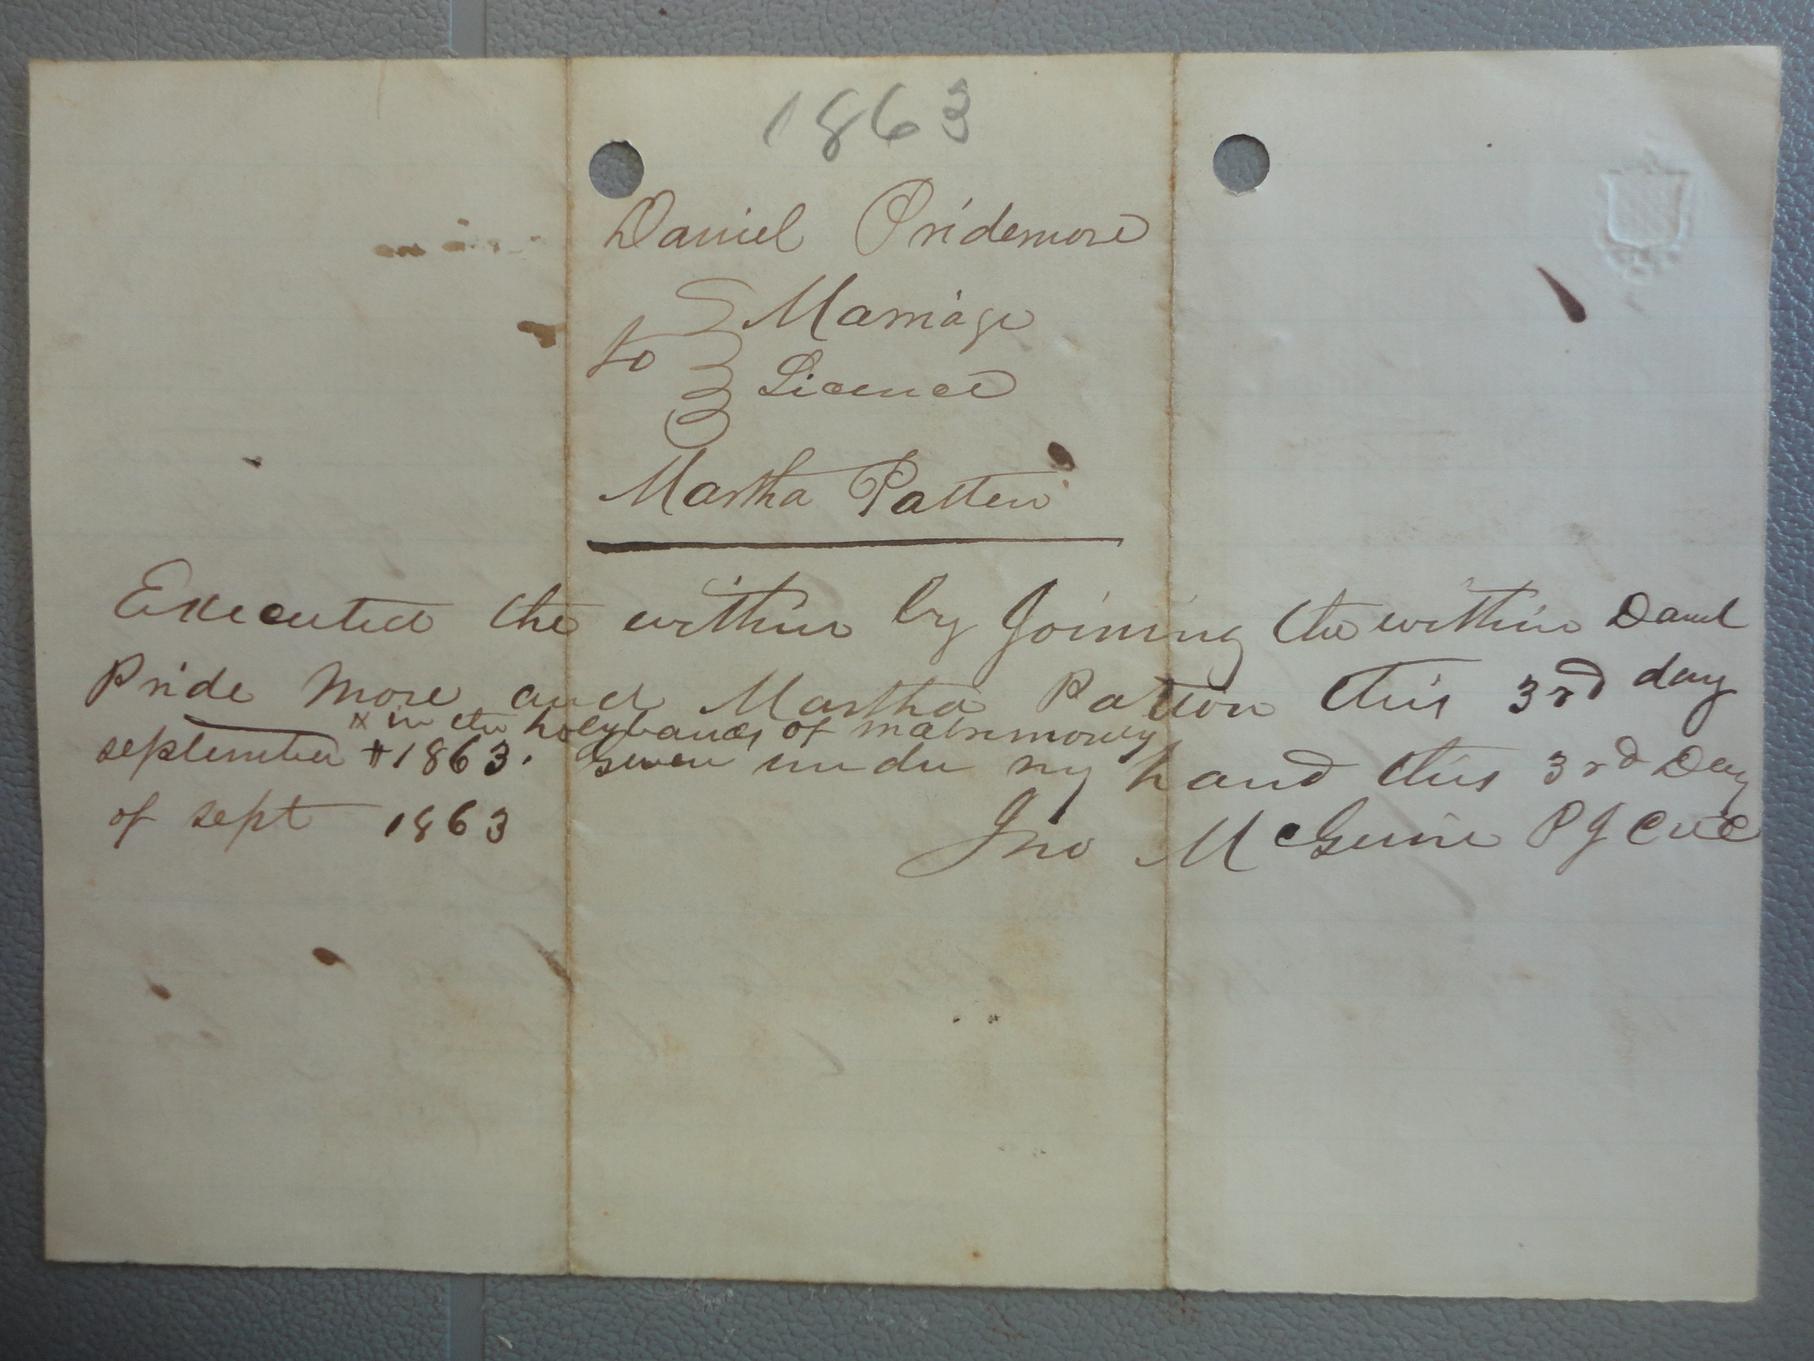 1863
Daniel Pridemore
to Marriage
Licence
Martha Patten
Executed the within by Joining the within Danl
Pride More and Martha Patton this 3rd day
x in the holy bands of matrimony
september # 1863. Given under my hand this 3rd Day
of sept 1863
Jno McGuire PJ